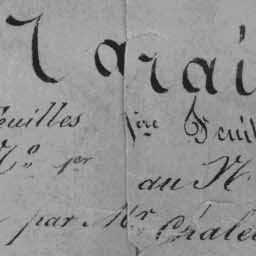 Marai
Feuilles 1ère Feuil
N.º 1er au N
par Mr Chale